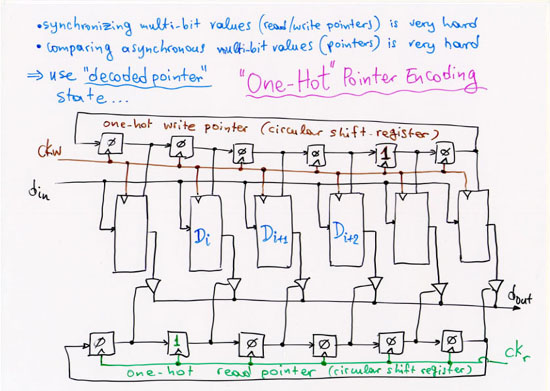 •synchronizing multi-bit values (read/write pointers) is very hard
• comparing asynchronous multi-bit values (pointers) is very hard
⇒ use "decoded pointer" "One-Hot" Pointer Encoding
state...
one-hot write pointer (circular shift-register)
ckw
0 0 0 0 1 0
din
Di Di+1 Di+2
dout
0 1 0 0 0 0
ckr
one-hot read pointer (circular shift register)